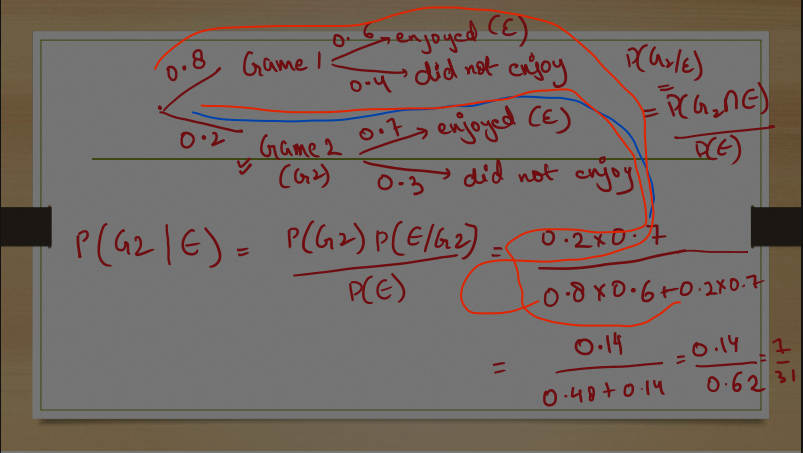 0.8 Game 1 0.6 enjoyed (E)
0.4 did not enjoy
0.2 Game 2 (G2) 0.7 enjoyed (E)
0.3 did not enjoy
P(G2/E)
= P(G2∩E) / P(E)
P(G2|E) = P(G2) P(E/G2) / P(E) = 0.2×0.7 / 0.8×0.6+0.2×0.7
= 0.14 / 0.48+0.14 = 0.14 / 0.62 = 7/31